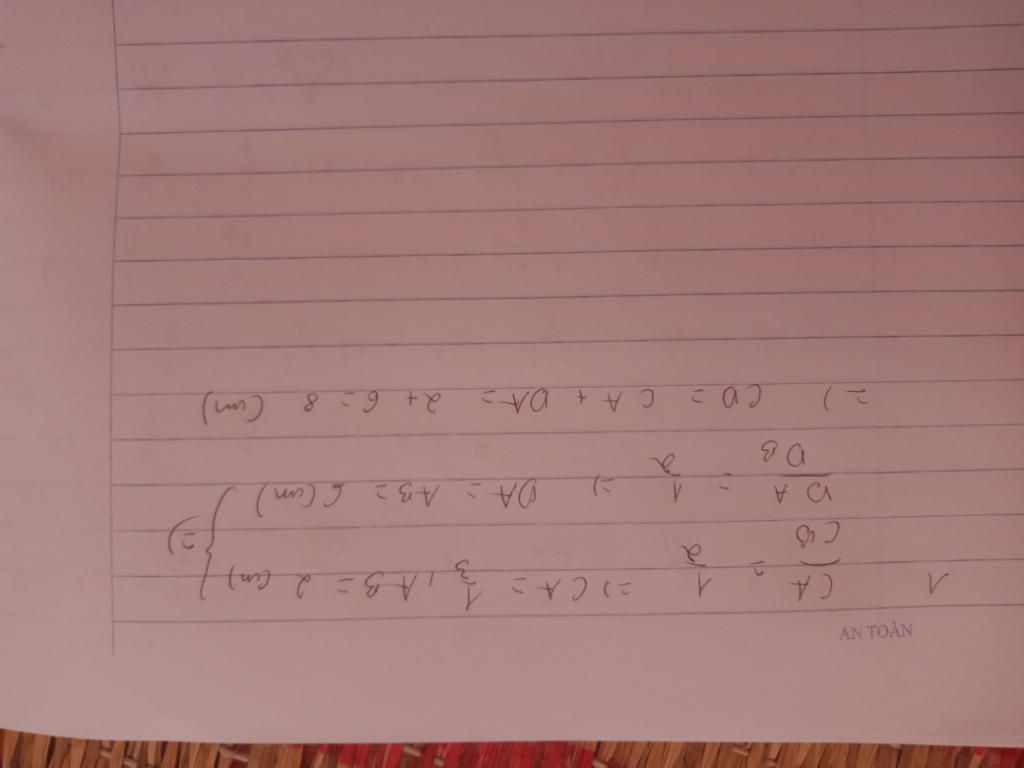 AN TOÀN
1 CA/CB = 1/2 => CA = 1/3 . AB = 2 (cm) } =>
DA/DB = 1/2 => DA = AB = 6 (cm)
=> CD = CA + DA = 2 + 6 = 8 (cm)